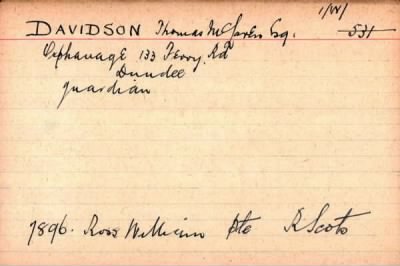 1/W/
DAVIDSON Thomas McLaren Esq. 531
Orphanage 133 Ferry Rd
Dundee
guardian
7896. Ross William Pte R Scots